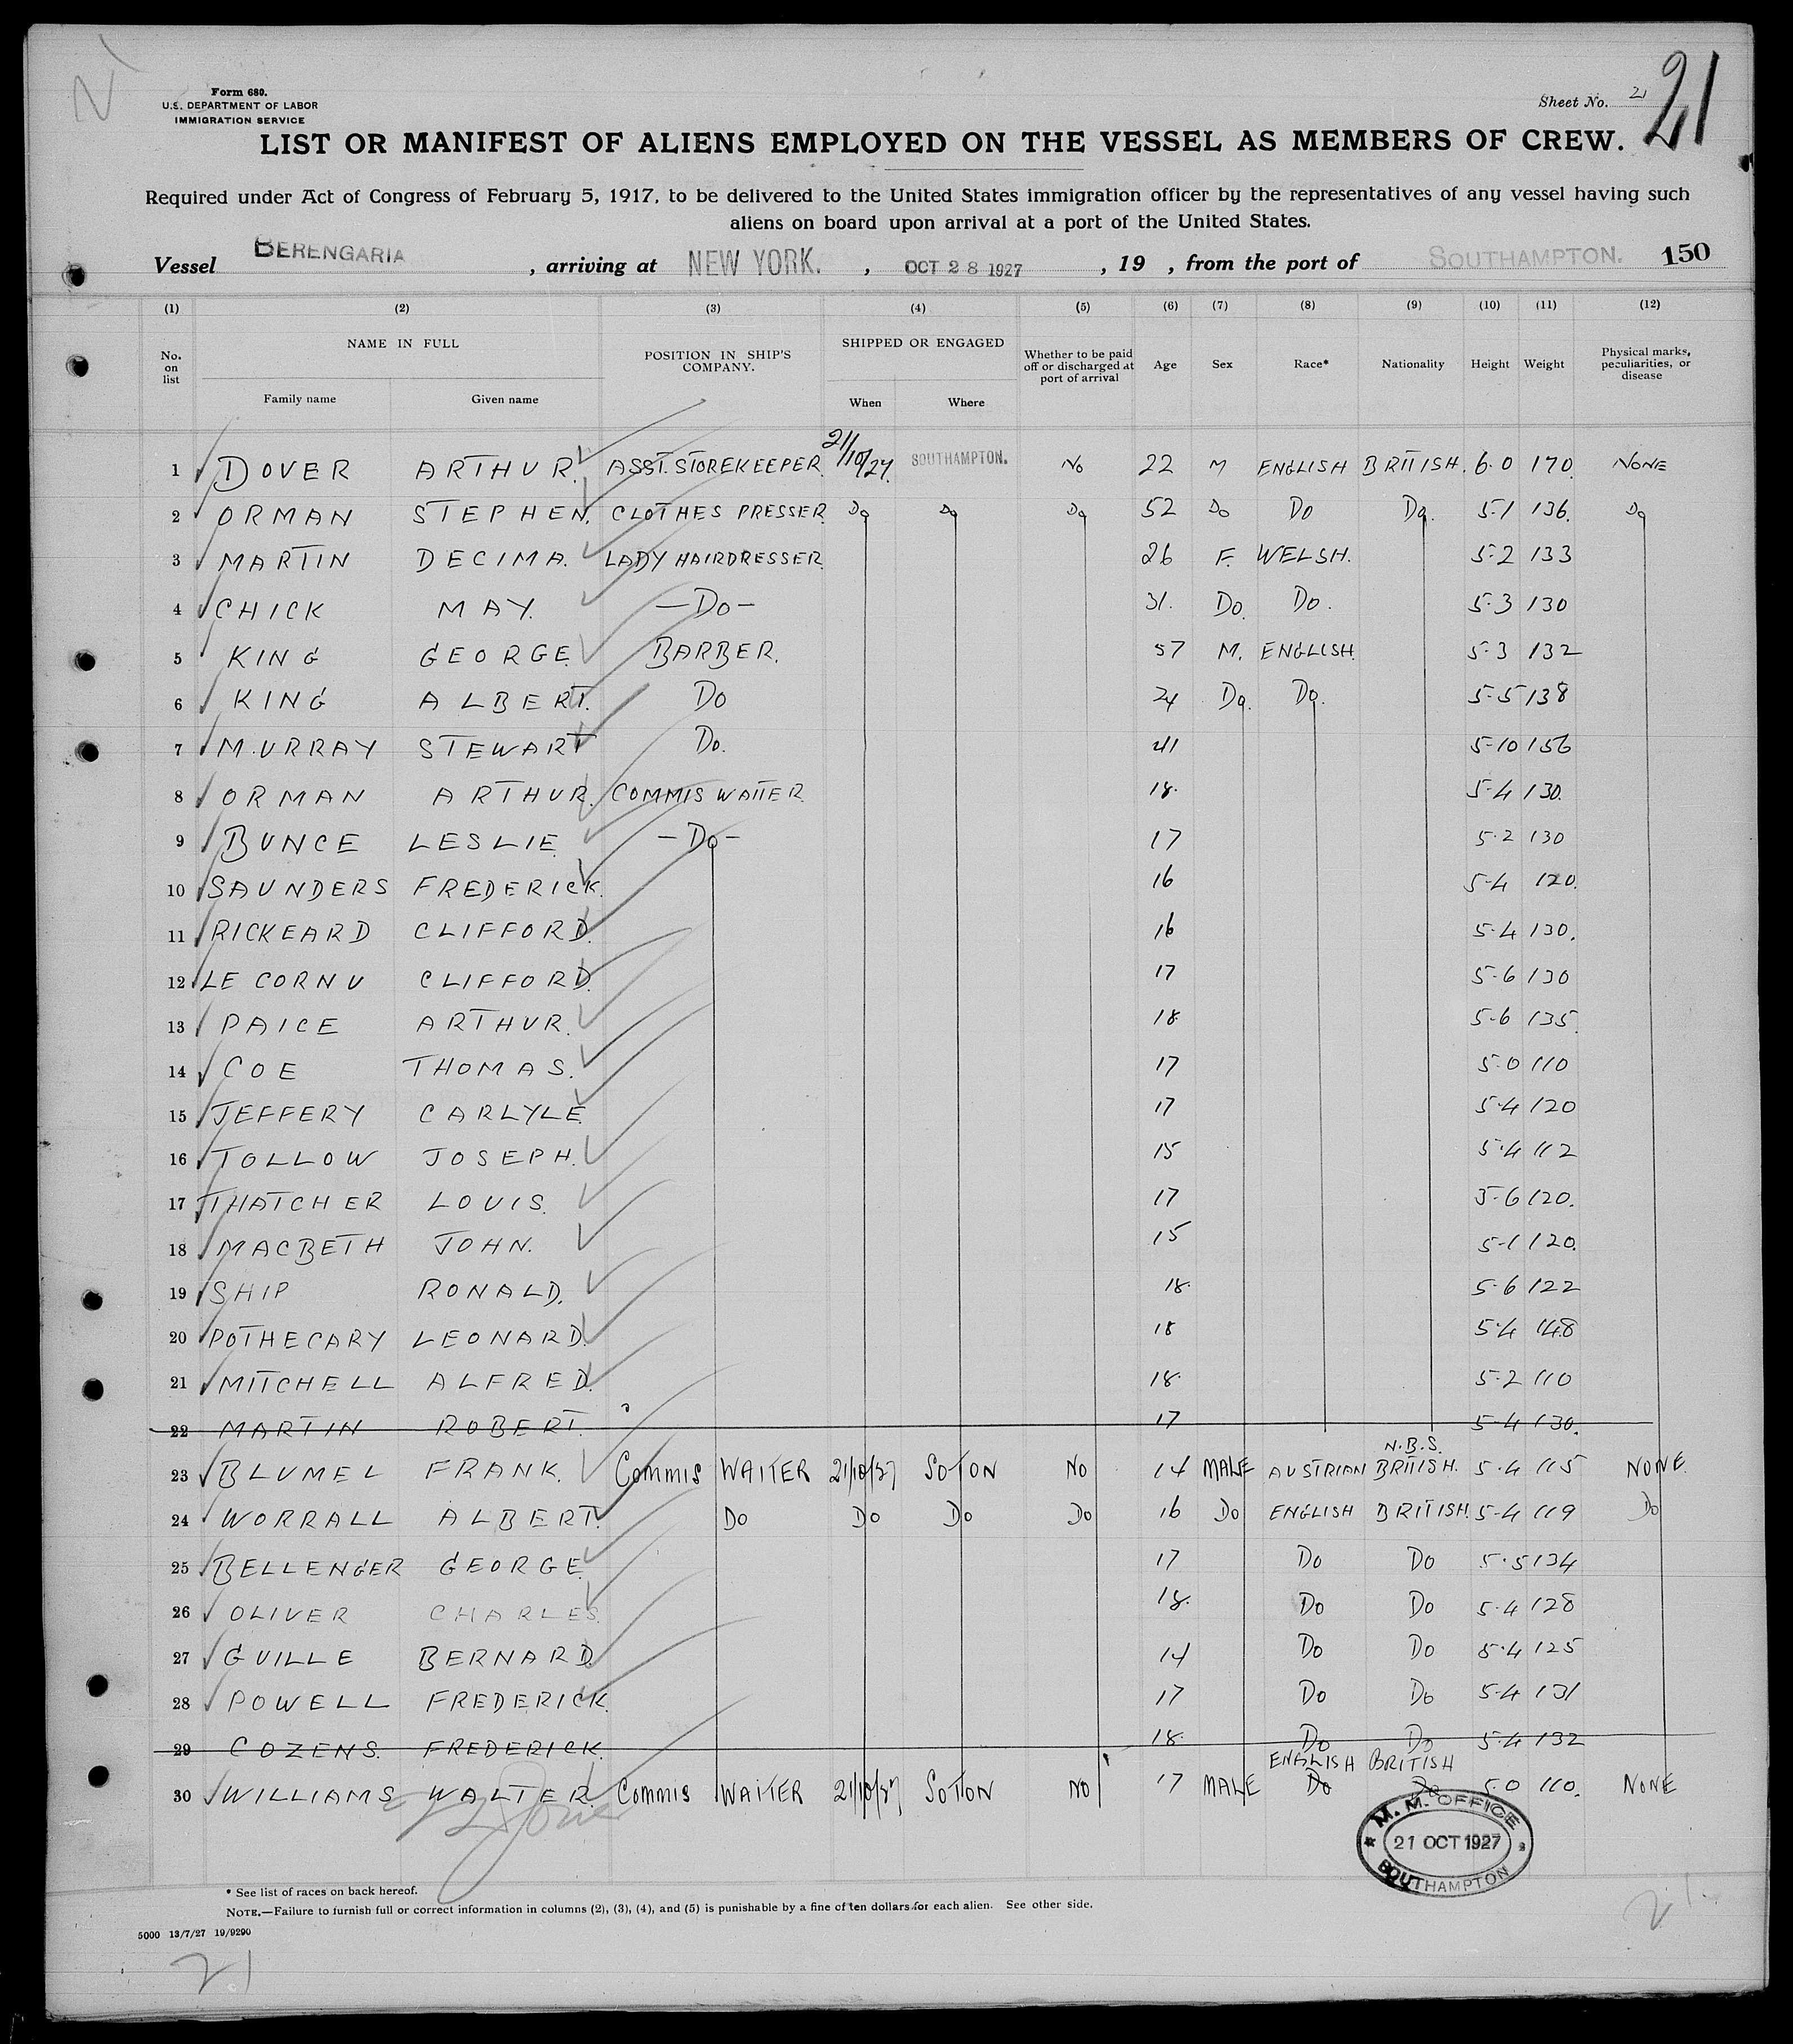 Form 680.
U.S. DEPARTMENT OF LABOR
IMMIGRATION SERVICE
Sheet No. 21
21
LIST OR MANIFEST OF ALIENS EMPLOYED ON THE VESSEL AS MEMBERS OF CREW.
Required under Act of Congress of February 5, 1917, to be delivered to the United States immigration officer by the representatives of any vessel having such
aliens on board upon arrival at a port of the United States.
Vessel BERENGARIA , arriving at NEW YORK. , OCT 28 1927 , 19 , from the port of SOUTHAMPTON. 150
(1) (2) (3) (4) (5) (6) (7) (8) (9) (10) (11) (12)
No. on list NAME IN FULL Family name Given name POSITION IN SHIP'S COMPANY. SHIPPED OR ENGAGED When Where Whether to be paid off or discharged at port of arrival Age Sex Race* Nationality Height Weight Physical marks, peculiarities, or disease
1 DOVER ARTHUR. ASST. STOREKEEPER. 21/10/27. SOUTHAMPTON. No 22 M ENGLISH BRITISH. 6.0 170. NONE
2 ORMAN STEPHEN. CLOTHES PRESSER. Do Do Do 52 Do Do Do. 5-1 136. Do
3 MARTIN DECIMA. LADY HAIRDRESSER. 26 F. WELSH. 5-2 133
4 CHICK MAY. -Do- 31. Do. Do. 5-3 130
5 KING GEORGE. BARBER. 57 M. ENGLISH. 5-3 132
6 KING ALBERT. Do 24 Do. Do. 5-5 138
7 MURRAY STEWART Do. 41 5-10 156
8 ORMAN ARTHUR. COMMIS WAITER. 18. 5-4 130.
9 BUNCE LESLIE. -Do- 17 5.2 130
10 SAUNDERS FREDERICK. 16 5-4 120.
11 RICKEARD CLIFFORD. 16 5.4 130.
12 LE CORNU CLIFFORD. 17 5-6 130
13 PAICE ARTHUR. 18. 5-6 135.
14 COE THOMAS. 17 5.0 110
15 JEFFERY CARLYLE. 17 5.4 120
16 TOLLOW JOSEPH. 15 5.4 112
17 THATCHER LOUIS. 17 5-6 120.
18 MACBETH JOHN. 15 5-1 120.
19 SHIP RONALD. 18. 5-6 122
20 POTHECARY LEONARD. 18 5.4 148
21 MITCHELL ALFRED. 18. 5-2 110
22 MARTIN ROBERT. 17 5-4 130.
N.B.S.
23 BLUMEL FRANK. Commis WAITER 21/10/27 SOTON NO 14 MALE AUSTRIAN BRITISH. 5.4 115 NONE.
24 WORRALL ALBERT. Do Do Do Do 16 Do ENGLISH BRITISH. 5-4 119 Do
25 BELLENGER GEORGE. 17 Do Do 5.5 134
26 OLIVER CHARLES. 18. Do Do 5.4 128
27 GUILLE BERNARD. 14 Do Do 5.4 125
28 POWELL FREDERICK. 17 Do Do 5.4 131
29 COZENS. FREDERICK. 18. Do Do 5.4 132
ENGLISH BRITISH
30 WILLIAMS WALTER. Commis WAITER 21/10/27 SOTON NO 17 MALE Do Do 5.0 110. NONE
M. M. OFFICE
21 OCT 1927
SOUTHAMPTON
* See list of races on back hereof.
NOTE.—Failure to furnish full or correct information in columns (2), (3), (4), and (5) is punishable by a fine of ten dollars for each alien. See other side.
5000 13/7/27 19/9290
21
21